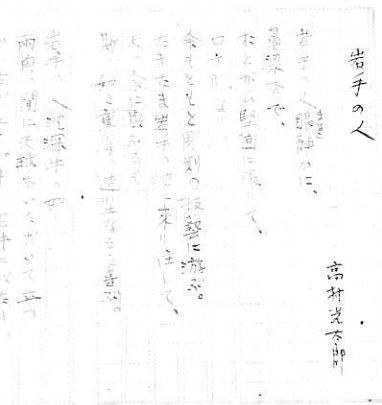 岩手の人
高村光太郎
岩手の人眼静かに、
鼻梁秀で、
おとがひ堅固に張りて、
口方形なり。
余もともと彫刻の技藝に游ぶ。
たまたま岩手の地に来り住して、
天の余に與ふるもの
斯の如き重厚の造型なるを喜ぶ。
岩手の人沈深牛の如し。
両角の間に天球をいただいて立つ